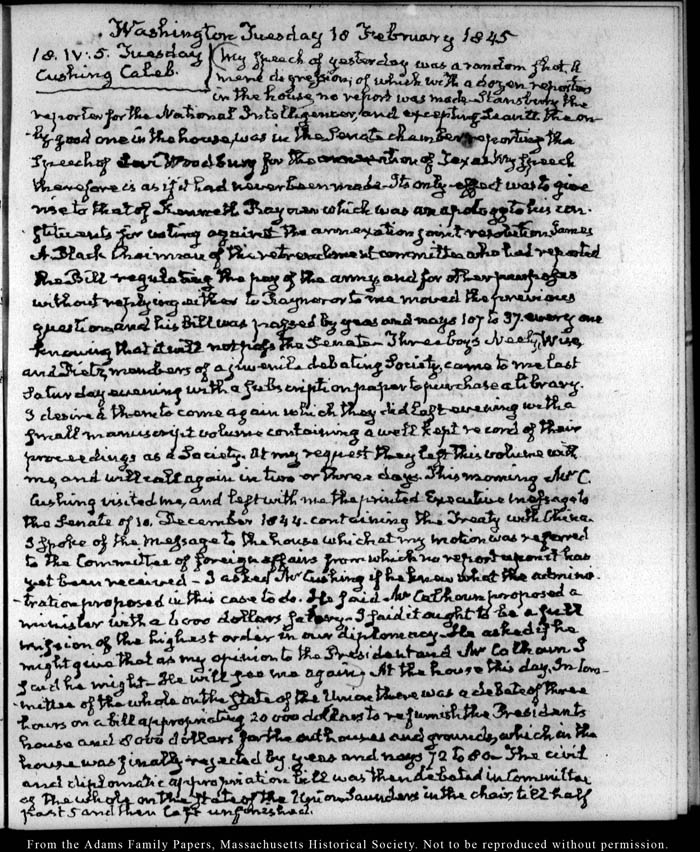 Washington Tuesday 18 February 1845
18. IV:5. Tuesday
Cushing Caleb.
My speech of yesterday was a random shot. A
mere digression, of which with a dozen reporters
in the house, no report was made. Stansbury the
reporter for the National Intelligencer, and excepting Leavitt the on-
ly good one in the house, was in the Senate chamber reporting the
speech of Levi Woodbury for the annexation of Texas. My speech
therefore is as if it had never been made. Its only effect was to give
rise to that of Kenneth Rayner which was an apology to his con-
stituents for voting against the annexation joint resolution. James
A. Black Chairman of the retrenchment committee who had reported
the Bill regulating the pay of the army and for other purposes
without replying either to Rayner or to me moved the previous
question, and his Bill was passed by yeas and nays 107 to 37. every one
knowing that it will not pass the Senate. Three boys Neely, Wise,
and Fietz, members of a juvenile debating Society, came to me last
Saturday evening with a subscription paper to purchase a library.
I desired them to come again which they did last evening with a
small manuscript volume containing a well kept record of their
proceedings as a Society. At my request they left this volume with
me, and will call again in two or three days. This morning Mr C.
Cushing visited me, and left with me the printed Executive message to
the Senate of 10. December 1844. containing the Treaty with China.
I spoke of the Message to the house which at my motion was referred
to the Committee of foreign affairs from which no report upon it has
yet been received - I asked Mr Cushing if he knew what the adminis-
tration proposed in this case to do. He said Mr Calhoun proposed a
minister with a 6000 dollars salary. I said it ought to be a full
mission of the highest order in our diplomacy. He asked if he
might give that as my opinion to the President and Mr Calhoun. I
said he might. He will see me again. At the house this day, In Com-
mittee of the whole on the State of the Union there was a debate of three
hours on a bill appropriating 20 000 dollars to refurnish the Presidents
house and 8000 dollars for the outhouses and grounds, which in the
house was finally rejected by yeas and nays 72 to 80. The civil
and diplomatic appropriation bill was then debated in Committee
of the whole on the State of the Union Saunders in the chair, till half
past 5 and then left unfinished.
From the Adams Family Papers, Massachusetts Historical Society. Not to be reproduced without permission.